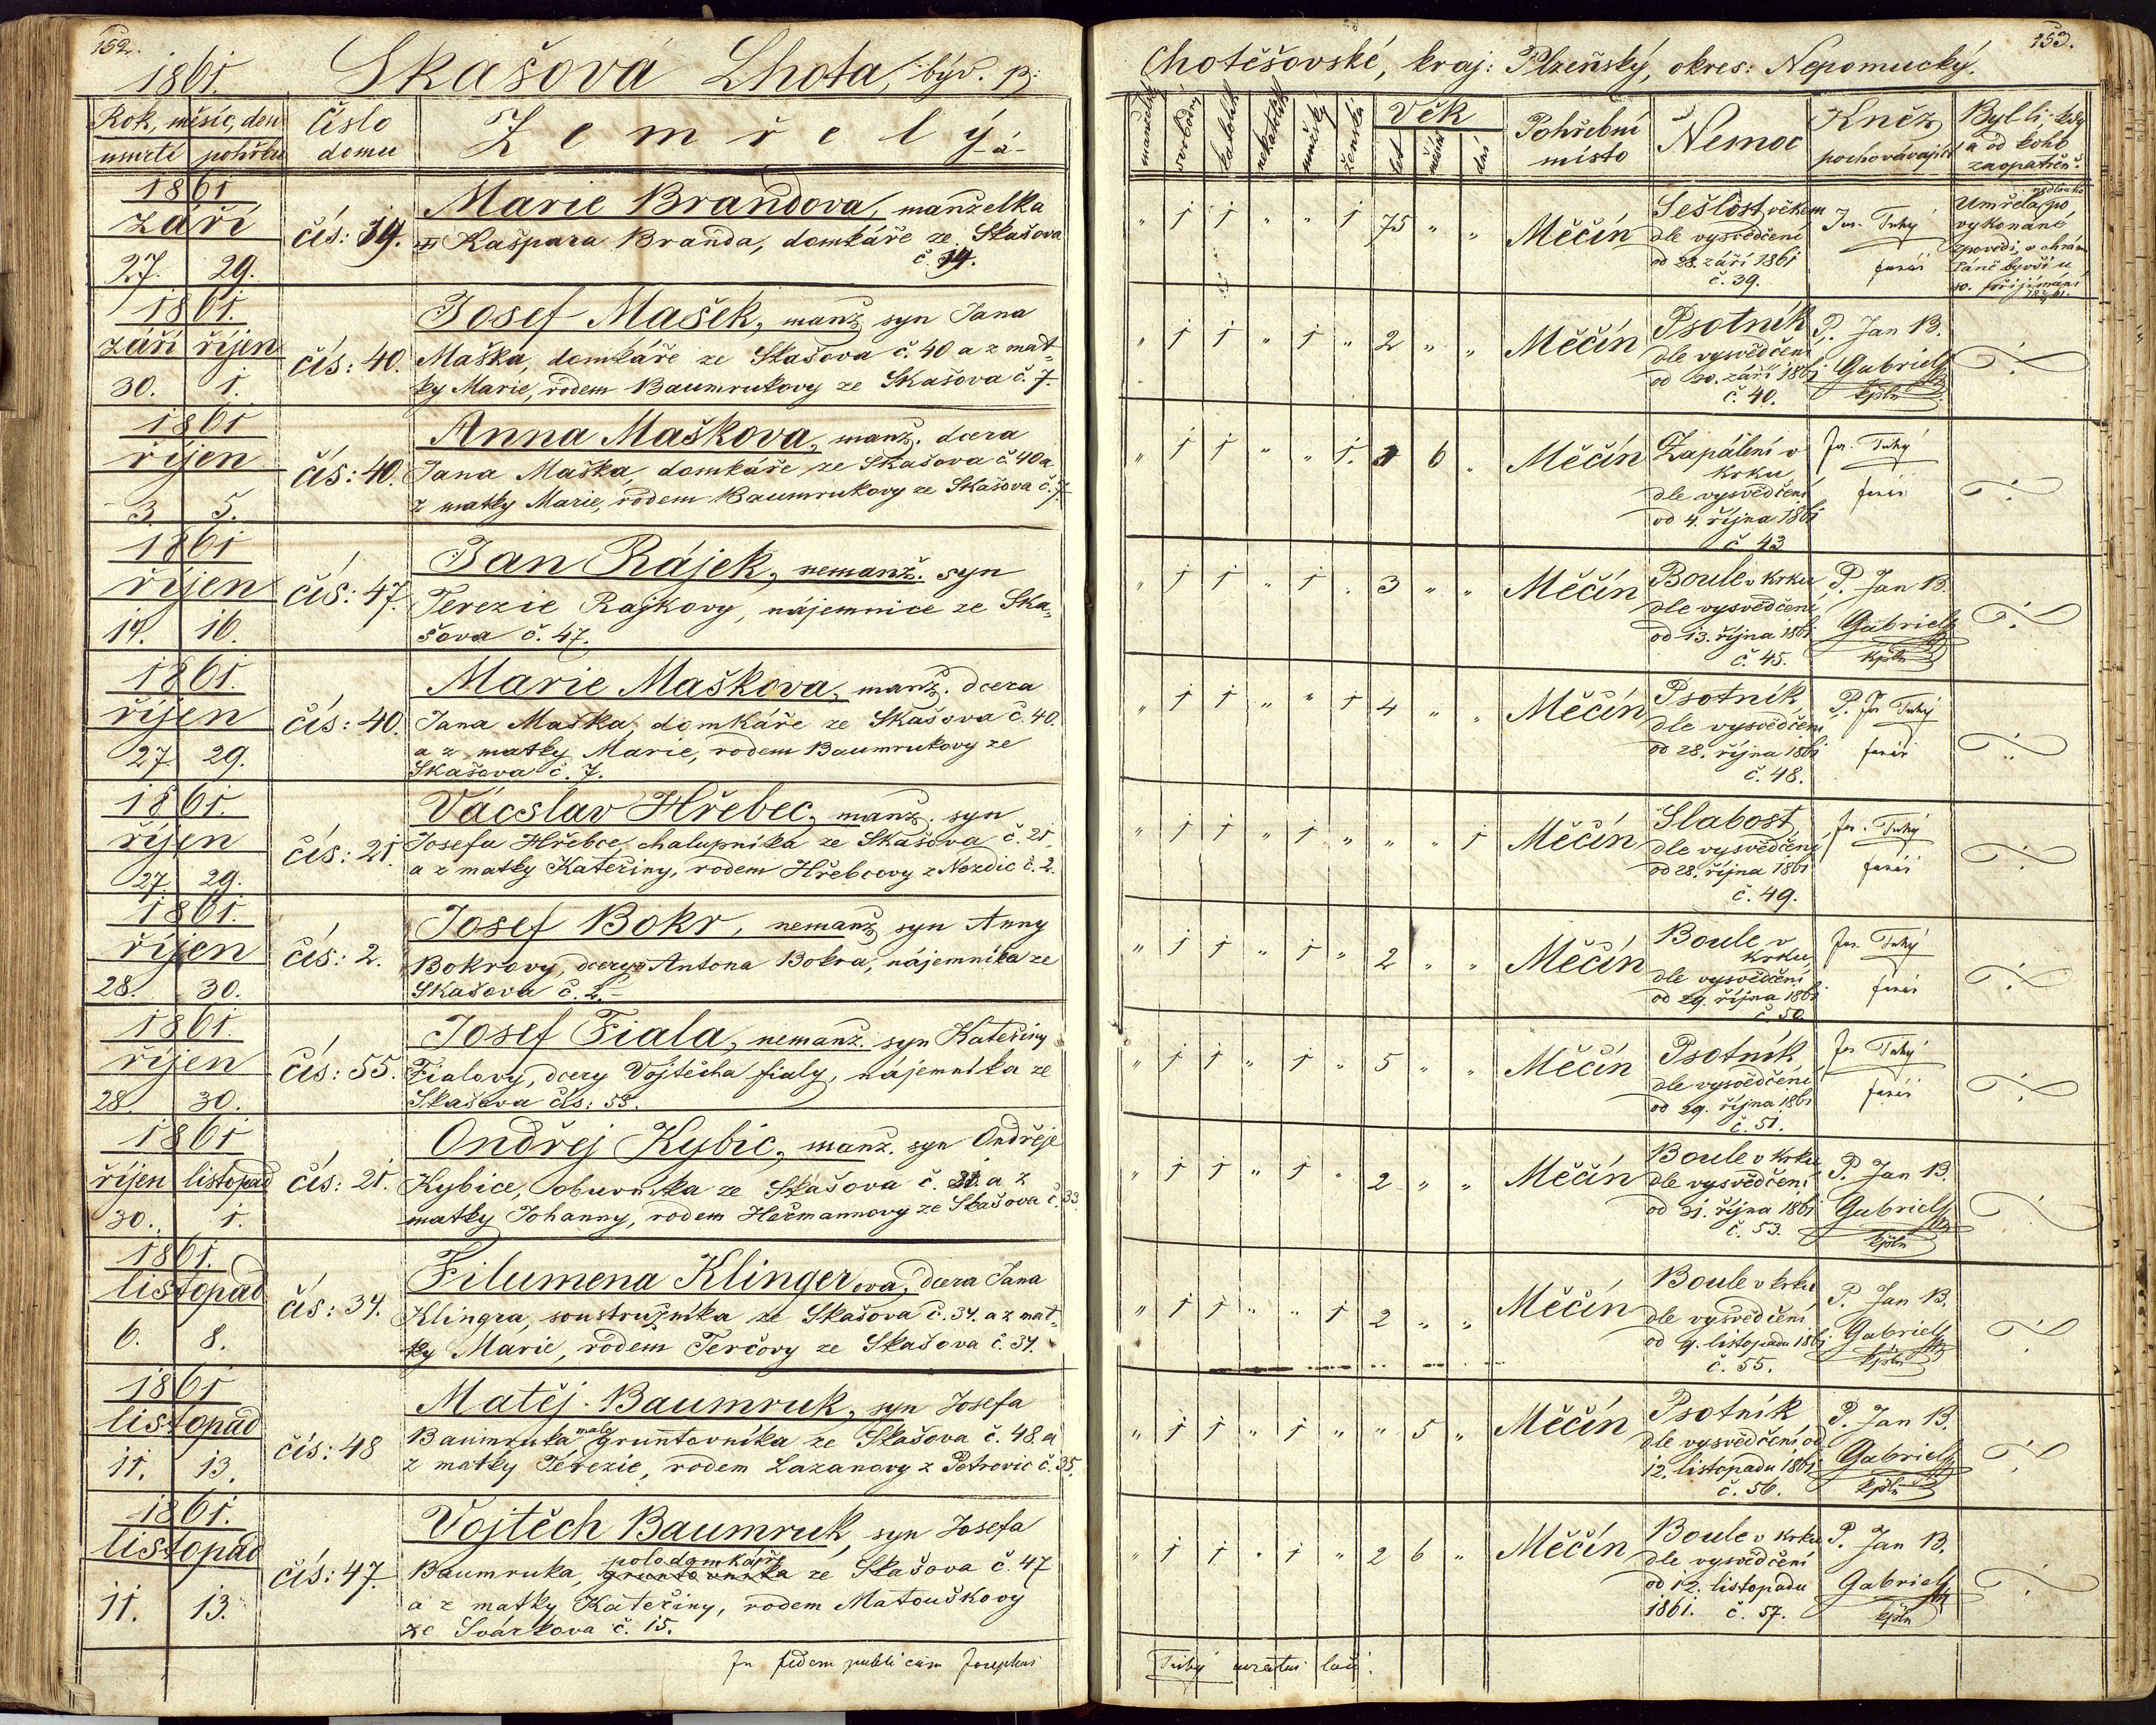 152.
1861. Skašová Lhota, býv. p:
Rok, měsíc, den
úmrtí pohřbu
Číslo
domu
Zemřelý
-á-
1861
září
27. 29.
čís: 19.
Marie Brandova, manželka
Kašpara Branda, domkáře ze Skašova
č. 19.
1861.
září říjen
30. 1.
čís: 40.
Josef Mašek, manž syn Jana
Maška, domkáře ze Skašova č. 40 a z mat-
ky Marie, rodem Baumrukovy ze Skašova č. 7.
1861
říjen
3. 5.
čís: 40.
Anna Maškova, manž. dcera
Jana Maška, domkáře ze Skašova č. 40 a
z matky Marie, rodem Baumrukovy ze Skašova č. 7.
1861
říjen
14. 16.
čís: 47.
Jan Rájek, nemanž. syn
Terezie Rajkovy, nájemnice ze Ska-
šova č. 47.
1861.
říjen
27. 29.
čís: 40.
Marie Maškova, manž. dcera
Jana Maška, domkáře ze Skašova č. 40.
a z matky Marie, rodem Baumrukovy ze
Skašova č. 7.
1861.
říjen
27. 29.
čís: 21.
Vácslav Hřebec, manž. syn
Josefa Hřebce, chalupníka ze Skašova č. 21.
a z matky Kateřiny, rodem Hřebcovy z Nezdic č. 2.
1861.
říjen
28. 30.
čís: 2.
Josef Bokr, nemanž syn Anny
Bokrovy, dcery Antona Bokra, nájemníka ze
Skašova č. 2.
1861.
říjen
28. 30.
čís: 55.
Josef Fiala, nemanž. syn Kateřiny
Fialovy, dcery Vojtěcha fialy, nájemníka ze
Skašova čís: 55.
1861
říjen listopad
30. 1.
čís: 21.
Ondřej Kybic, manž. syn Ondřeje
Kybice, obuvníka ze Skašova č. 21. a z
matky Johanny, rodem Heřmannovy ze Skašova č. 33
1861.
listopad
6. 8.
čís: 34.
Filumena Klingerova, dcera Jana
Klingra, soustružníka ze Skašova č. 34. a z mat-
ky Marie, rodem Terčovy ze Skašova č. 34.
1861
listopad
11. 13.
čís: 48
Matěj Baumruk, syn Josefa
Baumruka malogruntovníka ze Skašova č. 48. a
z matky Terezie, rodem Lazanovy z Petrovic č. 35.
1861.
listopad
11. 13.
čís: 47.
Vojtěch Baumruk, syn Josefa
polodomkáře
Baumruka, gruntovníka ze Skašova č. 47
a z matky Kateřiny, rodem Matouškovy
ze Svárkova č. 15.
In fidem publicam Josephus
153.
Chotěšovské, kraj: Plzeňský, okres: Nepomucký.
manželský
svobodný
katolík
nekatolík
mužský
ženská
Věk
let
měsíců
dní
Pohřební
místo
Nemoc
Kněz
pochovávající
Byl li, kdy
a od koho
zaopatřen?
" 1 1 " " 1 75 " "
Měčín
Sešlost věkem
dle vysvědčení
od 28. září 1861
č. 39.
Jos. Tuhý
farář
Umřela, po
vykonané
zpovědi, v chrámě
Páně byvši u
sv. přijímání
" 1 1 " 1 " 2 " "
Měčín
Psotník
dle vysvědčení
od 30. září 1861
č. 40.
P. Jan B.
Gabriel
kpln
" 1 1 " " 1. 1 6 "
Měčín
Zapálení v
krku
dle vysvědčení
od 4. října 1861
č. 43
Jos. Tuhý
farář
" 1 1 " 1 " 3 " "
Měčín
Boule v krku
dle vysvědčení
od 13. října 1861
č. 45.
P. Jan B.
Gabriel
kpln
" 1 1 " " 1 4 " "
Měčín
Psotník
dle vysvědčení
od 28. října 1861
č. 48.
P. Jos Tuhý
farář
" 1 1 " 1 " " " 1
Měčín
Slabost
dle vysvědčení
od 28. října 1861
č. 49.
Jos. Tuhý
farář
" 1 1 " 1 " 2 " "
Měčín
Boule v
krku,
dle vysvědčení
od 29. října 1861
č. 50
Jos. Tuhý
farář
" 1 1 " 1 " 5 " "
Měčín
Psotník
dle vysvědčení
od 29. října 1861
č. 51.
Jos Tuhý
farář
" 1 1 " 1 " 2 " "
Měčín
Boule v krku
dle vysvědčení
od 31. října 1861
č. 53.
P. Jan B.
Gabriel
kpln
" 1 1 " " 1 2 " "
Měčín
Boule v krku
dle vysvědčení
od 9. listopadu 1861
č. 55.
P. Jan B.
Gabriel
kpln
" 1 1 " 1 " " 5 "
Měčín
Psotník
dle vysvědčení od
12. listopadu 1861
č. 56.
P. Jan B.
Gabriel
kpln
" 1 1 " 1 " 2 6 "
Měčín
Boule v krku
dle vysvědčení
od 12. listopadu
1861. č. 57.
P. Jan B.
Gabriel
kpln
Tuhý curatus loci.